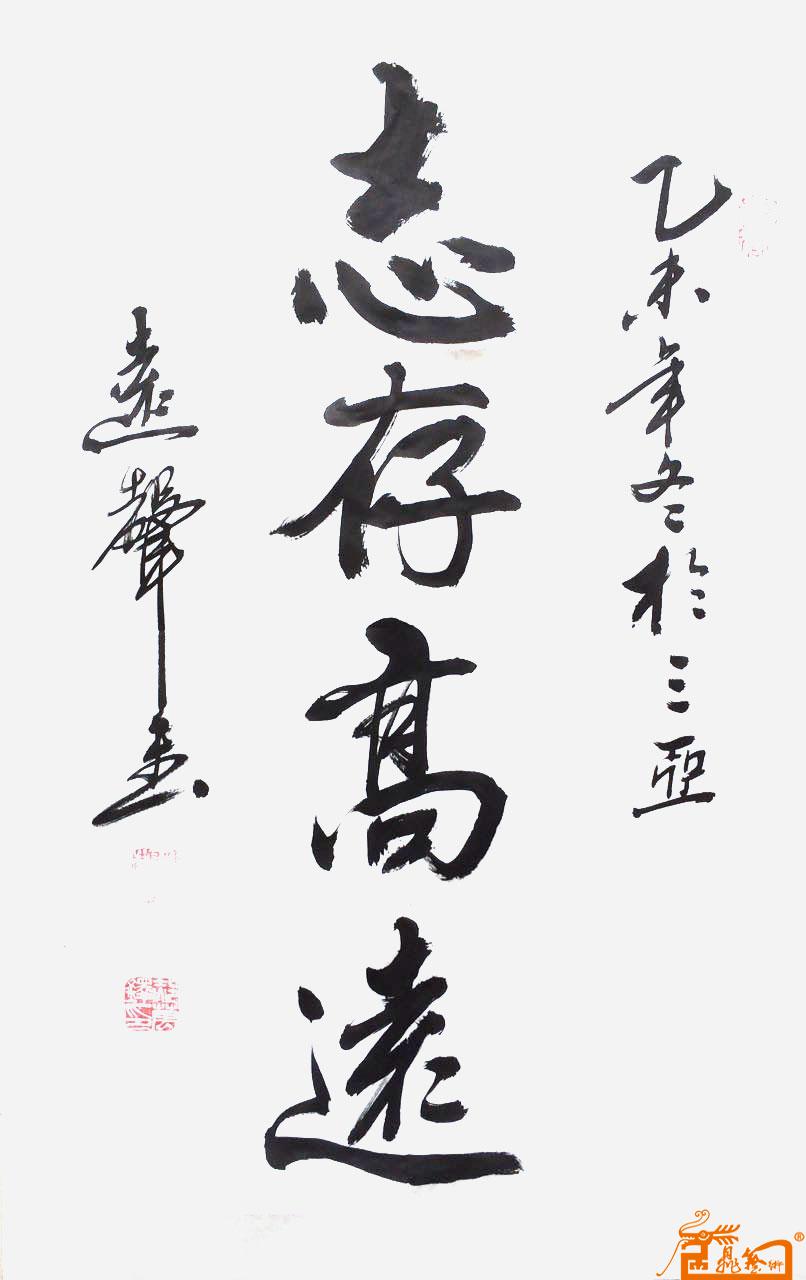 乙未年冬於三亞
志存高遠
遠聲書
®